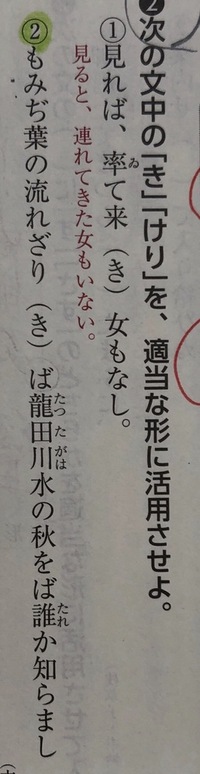 ❷次の文中の「き」「けり」を、適当な形に活用させよ。
①見れば、率て来（き）女もなし。
ゐ
見ると、連れてきた女もいない。
②もみぢ葉の流れざり（き）ば龍田川水の秋をば誰か知らまし
たつたがは
たれ